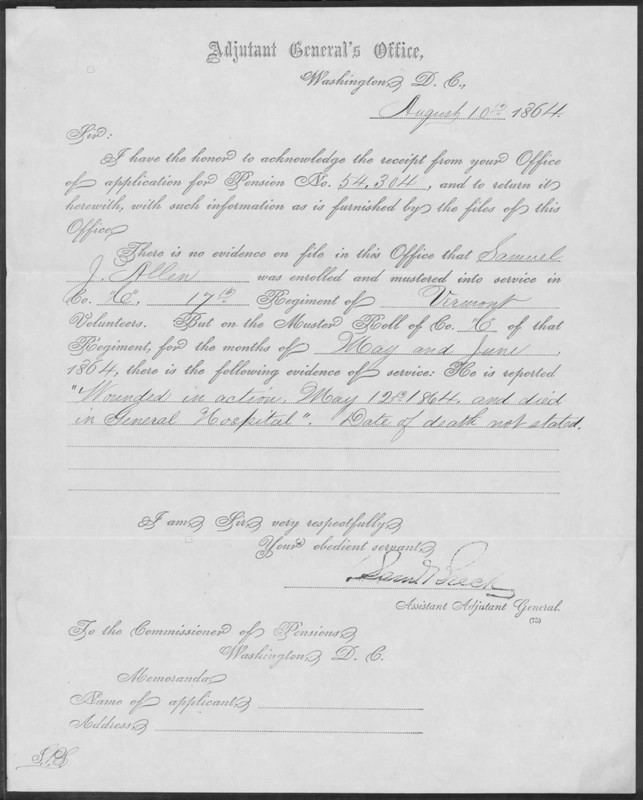 Adjutant General's Office,
Washington, D. C.,
August 10th 1864.
Sir:
I have the honor to acknowledge the receipt from your Office
of application for Pension No. 54,304, and to return it
herewith, with such information as is furnished by the files of this
Office.
There is no evidence on file in this Office that Samuel
J. Allen was enrolled and mustered into service in
Co. 17th Regiment of Vermont
Volunteers. But on the Muster Roll of Co. of that
Regiment, for the months of May and June
1864, there is the following evidence of service: He is reported
"Wounded in action, May 12th 1864, and died
in General Hospital". Date of death not stated.
I am, Sir, very respectfully,
Your obedient servant,
Assistant Adjutant General.
To the Commissioner of Pensions,
Washington, D. C.
Memoranda
Name of applicant,
Address,